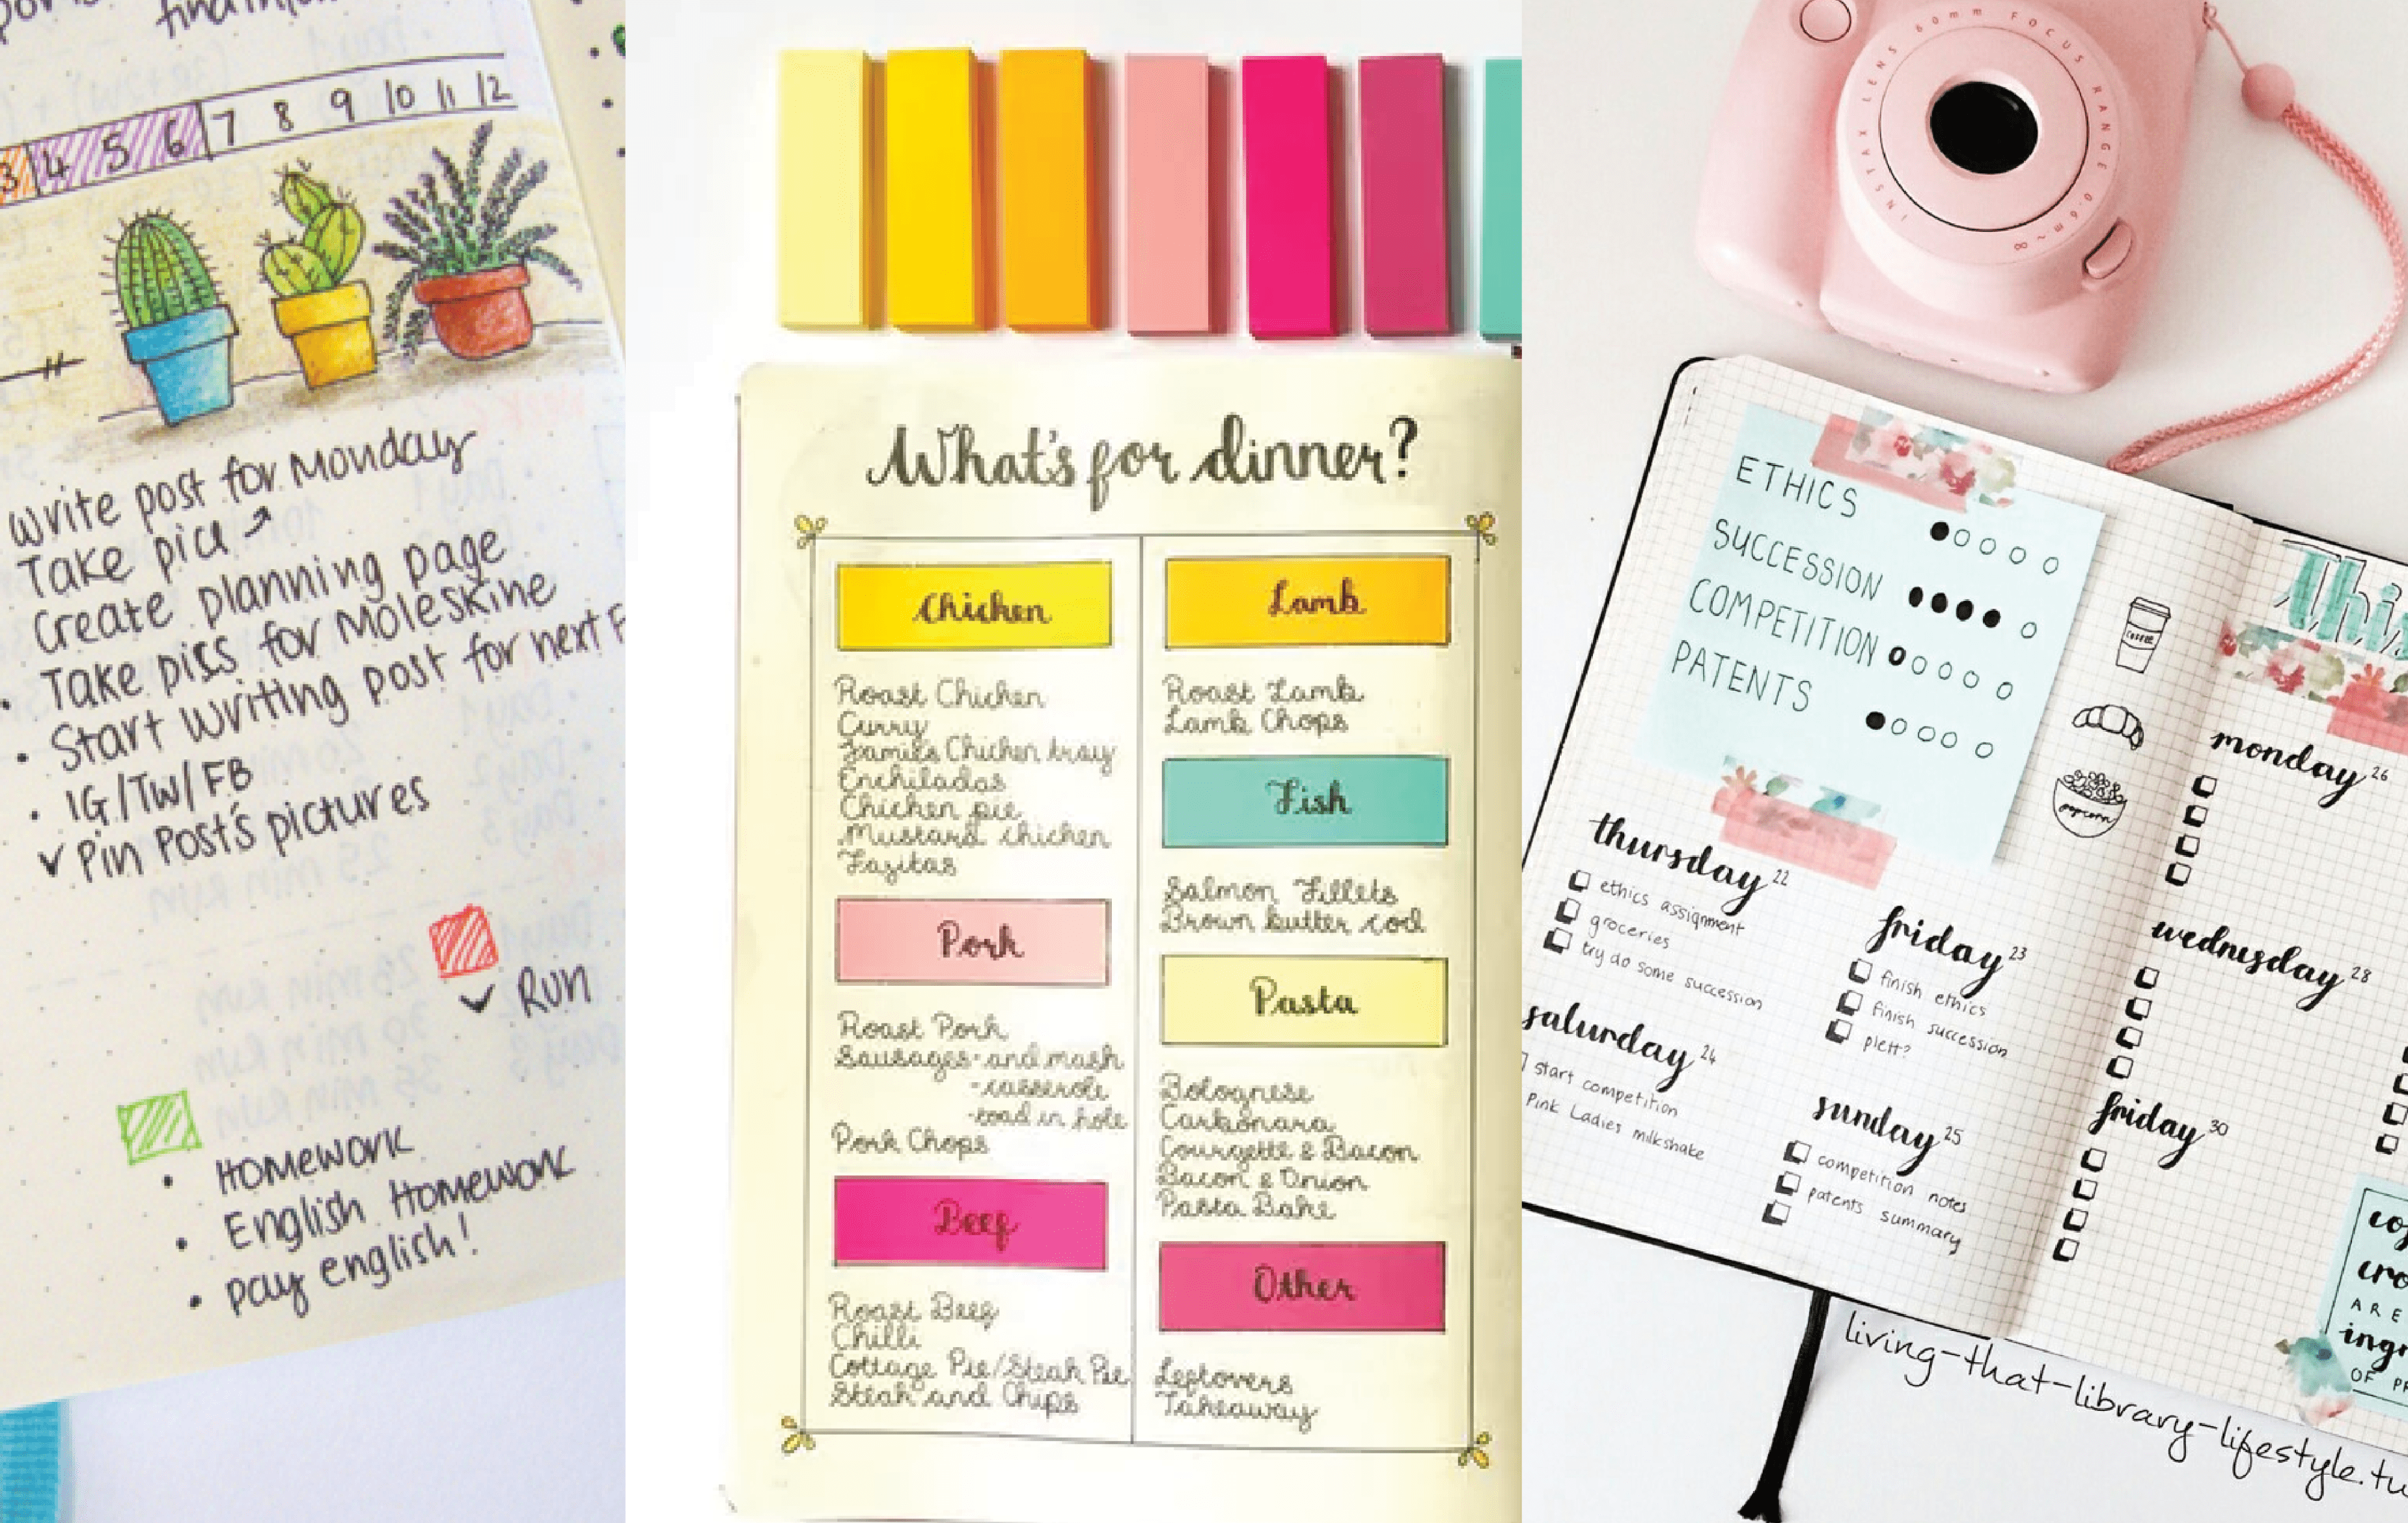 3 4 5 6 7 8 9 10 11 12
Write post for Monday
Take pics
Create planning page
• Take pics for Moleskine
• Start writing post for next F
• IG/TW/FB
✓ Pin Post's pictures
✓ Run
• Homework
• English Homework
• Pay english!
What's for dinner?
Chicken
Roast Chicken
Curry
Jamie's Chicken tray
Enchiladas
Chicken pie
Mustard chicken
Fajitas
Pork
Roast Pork
Sausages - and mash
- casserole
- toad in hole
Pork Chops
Beef
Roast Beef
Chilli
Cottage Pie/Steak Pie
Steak and Chips
Lamb
Roast Lamb
Lamb Chops
Fish
Salmon Fillets
Brown butter cod
Pasta
Bolognese
Carbonara
Courgette & Bacon
Bacon & Onion
Pasta Bake
Other
Leftovers
Takeaway
INSTAX LENS 60mm FOCUS RANGE 0.6m~∞
ETHICS
SUCCESSION
COMPETITION
PATENTS
COFFEE
popcorn
thursday 22
ethics assignment
groceries
try do some succession
friday 23
finish ethics
finish succession
plett?
saturday 24
start competition
Pink Ladies milkshake
sunday 25
competition notes
patents summary
This
monday 26
wednesday 28
friday 30
cof
cro
ARE
ingr
OF PR
living-that-library-lifestyle.tu